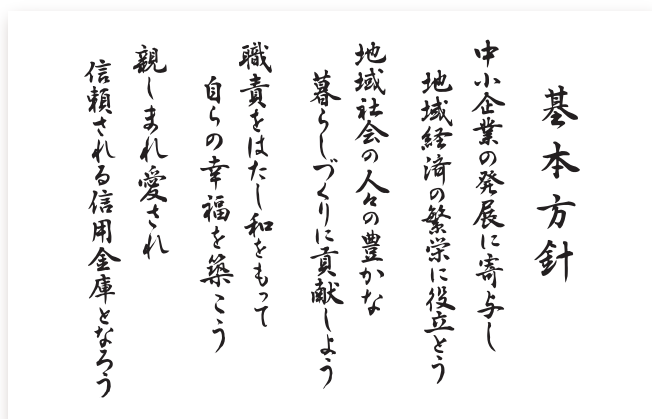 基本方針
中小企業の発展に寄与し
地域経済の繁栄に役立とう
地域社会の人々の豊かな
暮らしづくりに貢献しよう
職責をはたし和をもって
自らの幸福を築こう
親しまれ愛され
信頼される信用金庫となろう